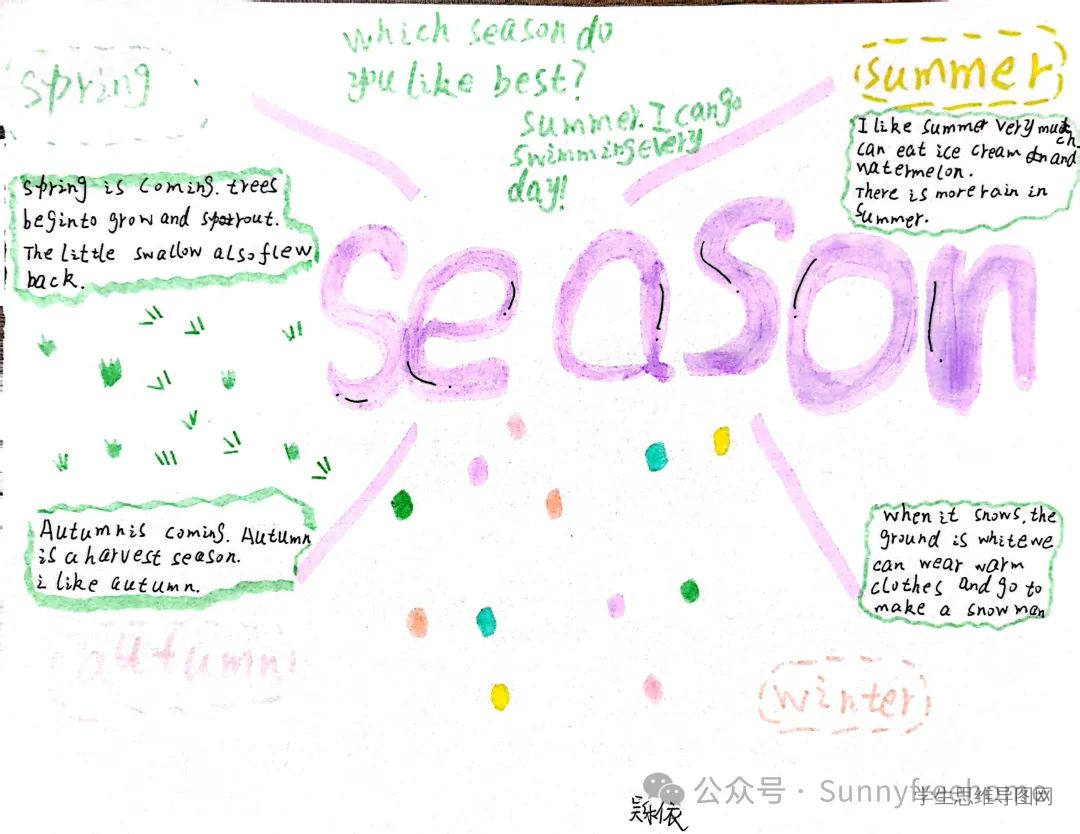 spring
which season do
you like best?
summer. I can go
swimming every
day!
summer
I like summer very much
can eat ice cream and
watermelon.
There is more rain in
summer.
spring is coming. trees
begin to grow and sprout.
The little swallow also flew
back.
season
Autumn is coming. Autumn
is a harvest season.
i like autumn.
autumn
when it snows, the
ground is white we
can wear warm
clothes and go to
make a snowman
winter
公众号 · Sunnyfreehome
学生思维导图网